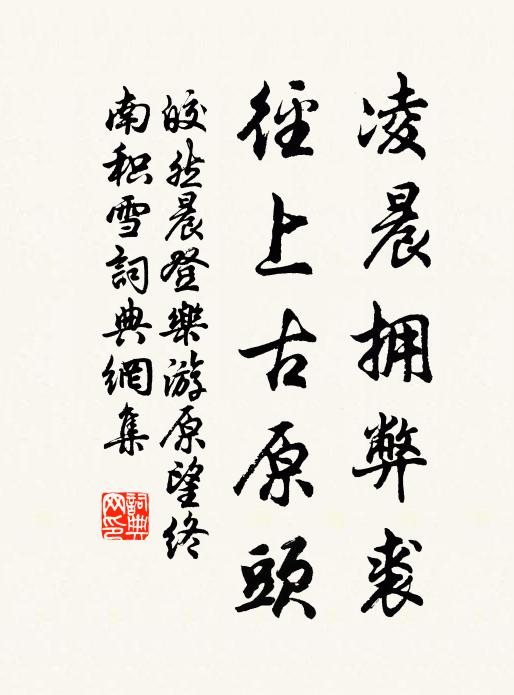 凌晨拥弊裘
径上古原頭
皎然晨登樂游原望终
南积雪詞典網集
詞典网印